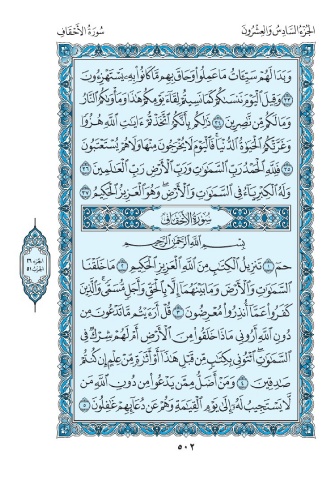 الجزء السادس والعشرون
سورة الأحقاف
وَبَدَا لَهُمْ سَيِّـَٔاتُ مَا عَمِلُوا۟ وَحَاقَ بِهِم مَّا كَانُوا۟ بِهِۦ يَسْتَهْزِءُونَ
٣٣ وَقِيلَ ٱلْيَوْمَ نَنسَىٰكُمْ كَمَا نَسِيتُمْ لِقَآءَ يَوْمِكُمْ هَٰذَا وَمَأْوَىٰكُمُ ٱلنَّارُ
وَمَا لَكُم مِّن نَّٰصِرِينَ ٣٤ ذَٰلِكُم بِأَنَّكُمُ ٱتَّخَذْتُمْ ءَايَٰتِ ٱللَّهِ هُزُوًا
وَغَرَّتْكُمُ ٱلْحَيَوٰةُ ٱلدُّنْيَا فَٱلْيَوْمَ لَا يُخْرَجُونَ مِنْهَا وَلَا هُمْ يُسْتَعْتَبُونَ
٣٥ فَلِلَّهِ ٱلْحَمْدُ رَبِّ ٱلسَّمَٰوَٰتِ وَرَبِّ ٱلْأَرْضِ رَبِّ ٱلْعَٰلَمِينَ ٣٦
وَلَهُ ٱلْكِبْرِيَآءُ فِى ٱلسَّمَٰوَٰتِ وَٱلْأَرْضِ وَهُوَ ٱلْعَزِيزُ ٱلْحَكِيمُ ٣٧
سورة الأحقاف
بِسْمِ ٱللَّهِ ٱلرَّحْمَٰنِ ٱلرَّحِيمِ
حمٓ ١ تَنزِيلُ ٱلْكِتَٰبِ مِنَ ٱللَّهِ ٱلْعَزِيزِ ٱلْحَكِيمِ ٢ مَا خَلَقْنَا
ٱلسَّمَٰوَٰتِ وَٱلْأَرْضَ وَمَا بَيْنَهُمَآ إِلَّا بِٱلْحَقِّ وَأَجَلٍ مُّسَمًّى وَٱلَّذِينَ
كَفَرُوا۟ عَمَّآ أُنذِرُوا۟ مُعْرِضُونَ ٣ قُلْ أَرَءَيْتُم مَّا تَدْعُونَ مِن
دُونِ ٱللَّهِ أَرُونِى مَاذَا خَلَقُوا۟ مِنَ ٱلْأَرْضِ أَمْ لَهُمْ شِرْكٌ فِى
ٱلسَّمَٰوَٰتِ ٱئْتُونِى بِكِتَٰبٍ مِّن قَبْلِ هَٰذَآ أَوْ أَثَٰرَةٍ مِّنْ عِلْمٍ إِن كُنتُمْ
صَٰدِقِينَ ٤ وَمَنْ أَضَلُّ مِمَّن يَدْعُوا۟ مِن دُونِ ٱللَّهِ مَن
لَّا يَسْتَجِيبُ لَهُۥٓ إِلَىٰ يَوْمِ ٱلْقِيَٰمَةِ وَهُمْ عَن دُعَآئِهِمْ غَٰفِلُونَ ٥
الجزء ٢٦
الحزب ٥١
٥٠٢